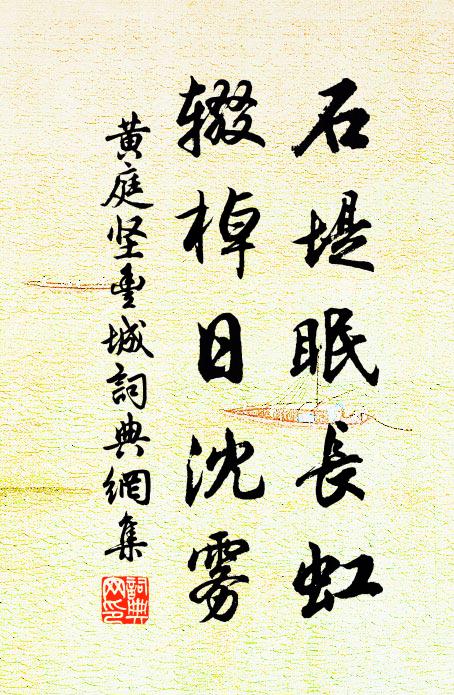 石堤眠長虹
辍棹日沈雾
黄庭坚豐城詞典網集
詞典网印